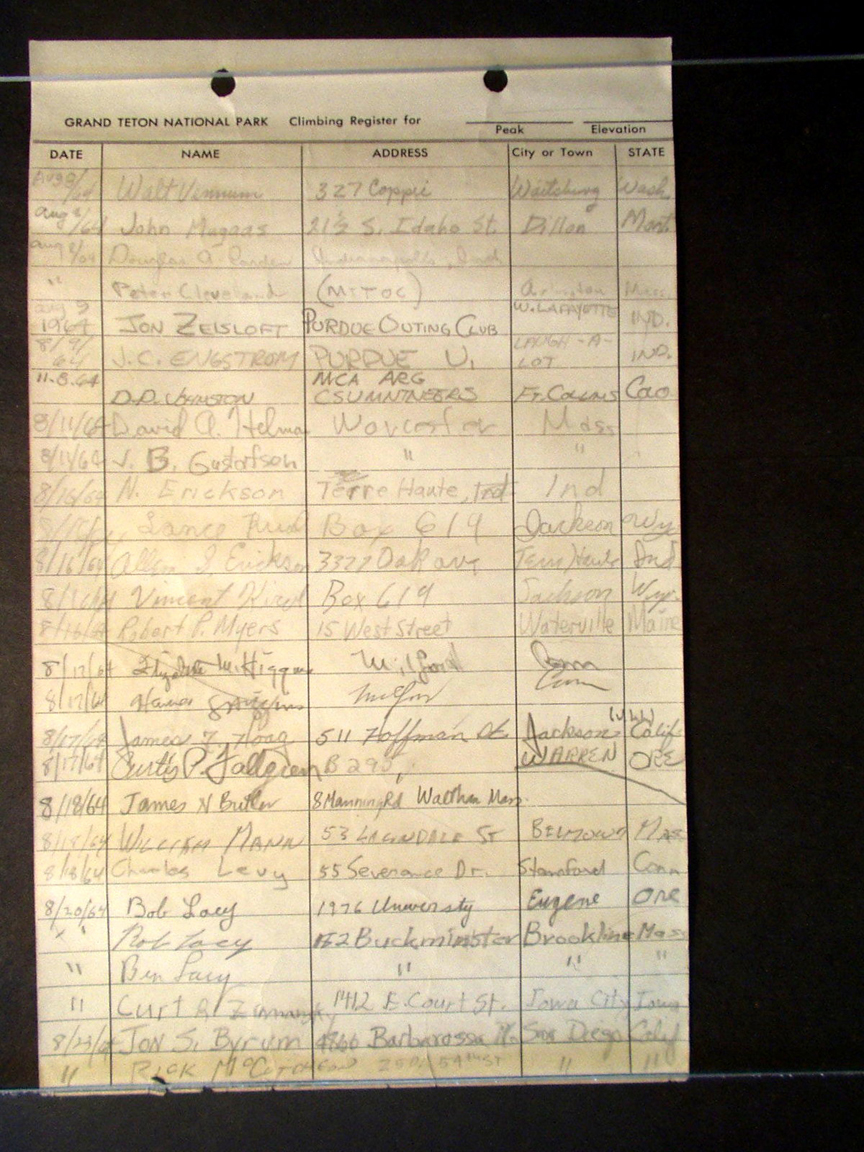 GRAND TETON NATIONAL PARK Climbing Register for
Peak Elevation
DATE NAME ADDRESS City or Town STATE
Walt Vennum 327 Coppei Waitsburg Wash
Aug 8/64 John Magaas 21½ S. Idaho St. Dillon Mont
Aug 8/64 Douglas A. Indianapolis, Ind
" Peter Cleveland (MITOC) Arlington Mass
Aug 9 W. LAFAYETTE
1964 JON ZEISLOFT PURDUE OUTING CLUB IND.
8/9/ LAUGH-A-
64 J.C. ENGSTROM PURDUE U. LOT IND.
11.8.64 MCA ARG
D.D. CSUMNTNEERS FT. COLLINS COLO
8/11/64 David A. Helma Worcester Mass
8/11/64 J. B. Gustafson " "
8/16/64 N. Erickson Terre Haute, Ind Ind
Lance Box 619 Jackson Wy
8/16/64 Allen Erickson 3327 Oak ave Terre Haute Ind
8/16/64 Vincent Box 619 Jackson Wyo
8/16/64 Robert P. Myers 15 West Street Waterville Maine
8/17/64 Elizabeth M. Higgins Milford Conn
8/17/64 Higgins Milford Conn
8/17/64 James F. Hoag 511 Hoffman Jackson Calif
8/17/64 Curtis P. B 295 WARREN ORE
8/18/64 James N Butler 8 Manning Rd Waltham Mass
8/18/64 WILLIAM MANN 53 LAWNDALE ST BELMONT Mass
8/18/64 Charles Levy 55 Severance Dr. Stamford Conn
8/20/64 Bob Lacy 1976 University Eugene ORE
" " Rob Lacy 152 Buckminster Brookline Mass
" Ben Lacy " " "
" Curt R. 1412 E. Court St. Iowa City Iowa
8/23/64 JON S. BYRUM 4766 Barbarossa San Diego Calif
" RICK McCUTCHEON 54TH ST " "